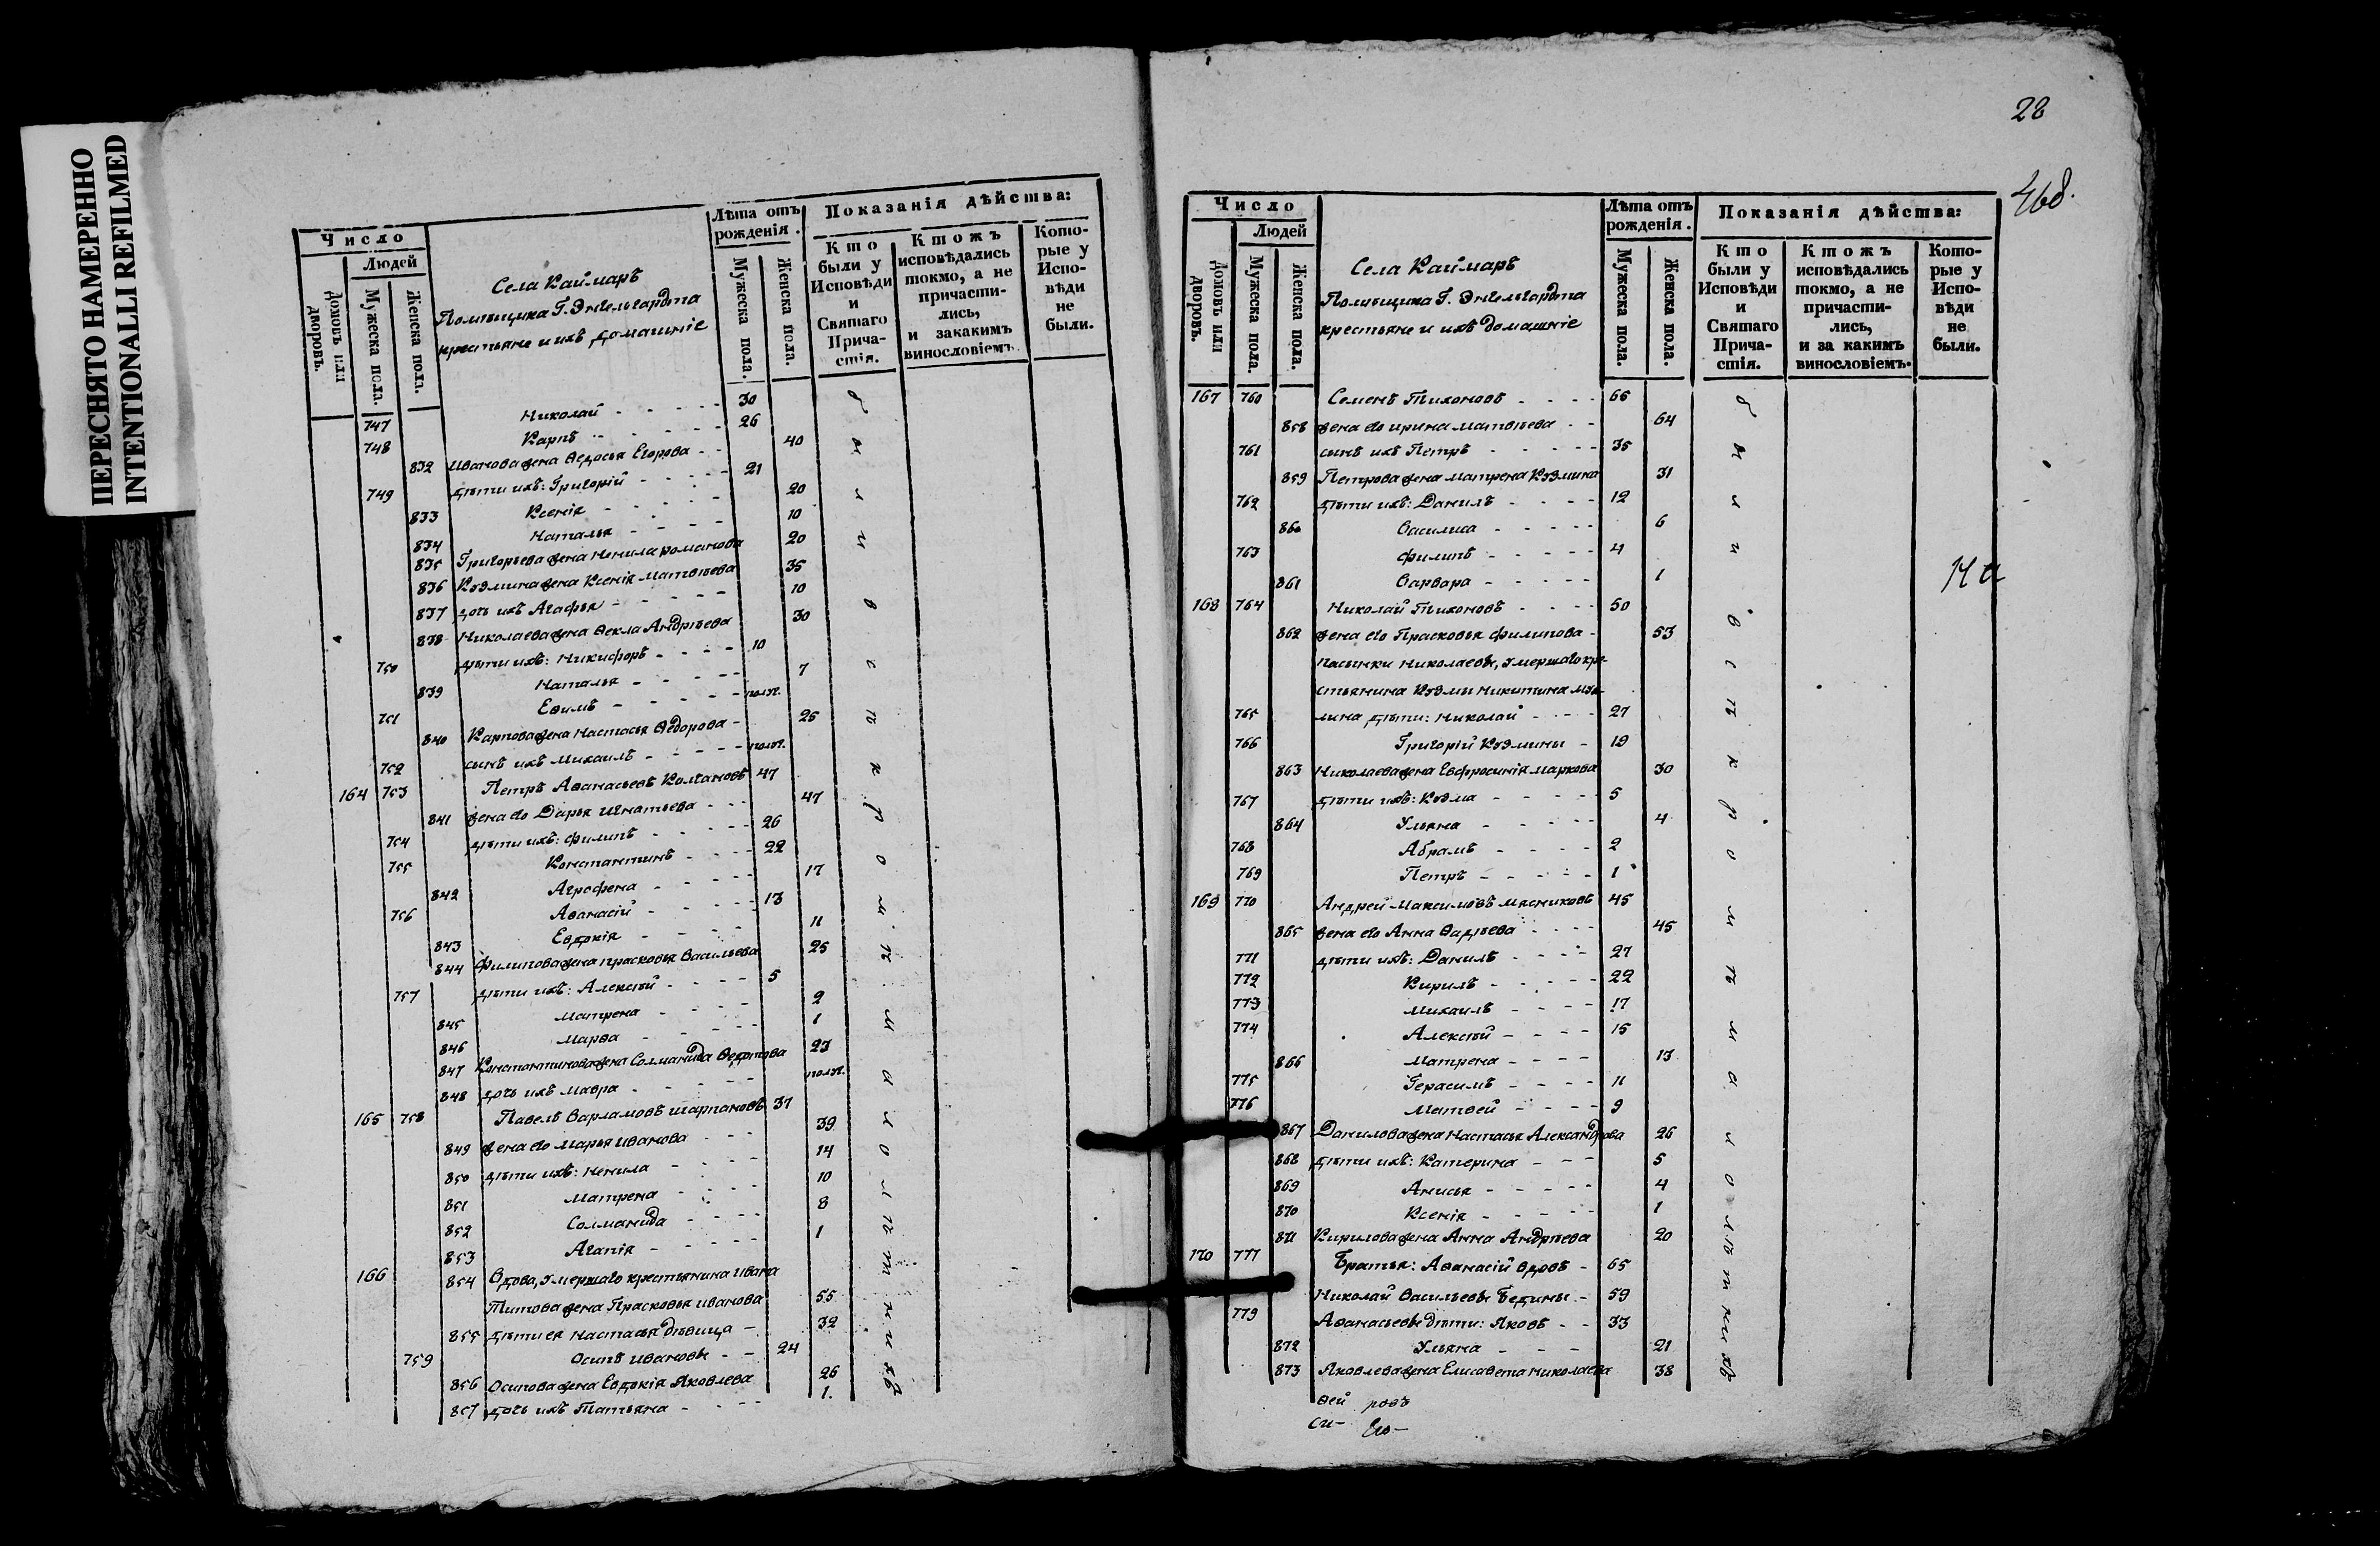 ПЕРЕСНЯТО НАМЕРЕННО
INTENTIONALLI REFILMED
Число
Людей
Домовъ или дворовъ.
Мужеска пола.
Женска пола.
Села Каймаръ
Помѣщика Г. Энгельгардта
крестьяне и ихъ домашніе
Лѣта отъ рожденія.
Мужеска пола.
Женска пола.
Показанія дѣйства:
Кто были у Исповѣди и Святаго Причастія.
Ктожъ исповѣдались токмо, а не причастились, и закакимъ винословіемъ
Которые у Исповѣди не были.
747 Николай - - - - - 30
748 Карпъ - - - - - 26
832 Иванова жена Ѳедосья Егорова - - 40
749 дѣти ихъ: Григорій - - - - 21
833 Ксенія - - - - - 20
834 Наталья - - - - 10
835 Григорьева жена Ненила Романова 20
836 Козмина жена Ксенія Матвѣева 35
837 дочь ихъ Агафья - - - - - 10
838 Николаева жена Ѳекла Андрѣева 30
750 дѣти ихъ: Никифоръ - - - - 10
839 Наталья - - - - - 7
751 Ефимъ - - - - - полг.
840 Карпова жена Настасья Ѳедорова - 25
752 сынъ ихъ Михаилъ - - - - - полг.
164 753 Петръ Аѳанасьевъ Колчановъ 47
841 жена его Дарья Игнатьева - - - 47
754 дѣти ихъ: Филипъ - - - - - 26
755 Константинъ - - - - 22
842 Аграфена - - - - - 17
756 Аѳанасій - - - - - 13
843 Евдокія - - - - 11
844 Филипова жена Прасковья Васильева 25
757 дѣти ихъ: Алексѣй - - - - 5
845 Матрена - - - - 2
846 Марѳа - - - - - 1
847 Константинова жена Соломанида Ѳедотова 23
848 дочь ихъ Мавра - - - - - полг.
165 758 Павелъ Варламовъ Шарпановъ 37
849 жена его Марья Иванова - - - 39
850 дѣти ихъ: Ненила - - - - 14
851 Матрена - - - - 10
852 Соломанида - - - - 8
853 Агапія - - - - - 1
166 854 Вдова, умершаго крестьянина Ивана
Титова жена Прасковья Иванова 55
855 дѣти ея Настасья дѣвица - 32
759 Осипъ Ивановы - - 24
856 Осипова жена Евдокія Яковлева 26
857 дочь ихъ Татьяна - - - - 1.
28
Число
Людей
Домовъ или дворовъ.
Мужеска пола.
Женска пола.
Села Каймаръ
Помѣщика Г. Энгельгардта
крестьяне и ихъ домашніе
Лѣта отъ рожденія.
Мужеска пола.
Женска пола.
Показанія дѣйства:
Кто были у Исповѣди и Святаго Причастія.
Ктожъ исповѣдались токмо, а не причастились, и за какимъ винословіемъ.
Которые у Исповѣди не были.
167 760 Семенъ Тихоновъ - - - - 66
858 жена его Ирина Матвѣева - - 64
761 сынъ ихъ Петръ - - - - - 35
859 Петрова жена Матрена Козмина 31
762 дѣти ихъ: Данилъ - - - - 12
860 Василиса - - - - - 6
763 Филипъ - - - - - 4
861 Варвара - - - - - 1
168 764 Николай Тихоновъ - - - - 50
862 жена его Прасковья Филипова - 53
Пасынки Николаевы, умершаго кре-
стьянина Козмы Никитина
765 дѣти: Николай - - - - 27
766 Григорій Козмины - 19
863 Николаева жена Евфросинія Маркова 30
767 дѣти ихъ: Козма - - - - - 5
864 Ульяна - - - - - 4
768 Абрамъ - - - - - 2
769 Петръ - - - - - 1
169 770 Андрей Максимовъ Мясниковъ 45
865 жена его Анна Ѳадѣева - - - - 45
771 дѣти ихъ: Данилъ - - - - 27
772 Кирилъ - - - - - 22
773 Михаилъ - - - - 17
774 Алексѣй - - - - 15
866 Матрена - - - - 13
775 Герасимъ - - - - 11
776 Матвей - - - - 9
867 Данилова жена Настасья Александрова 26
868 дѣти ихъ: Катерина - - - 5
869 Анисья - - - - - 4
870 Ксенія - - - - - 1
871 Кирилова жена Анна Андрѣева 20
170 777 Братья: Аѳанасій вдовъ - 65
Николай Васильевы Бедины - 59
779 Аѳанасьевы дѣти: Яковъ - - 33
872 Ульяна - - - 21
873 Яковлева жена Елисавета Николаева 38